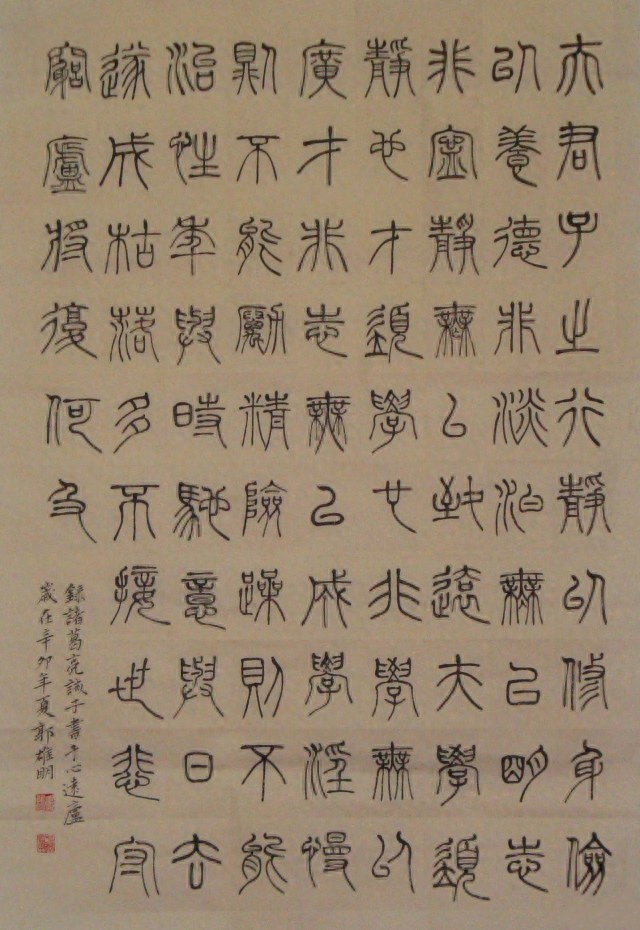 夫君子之行靜以修身儉
以養德非淡泊無以明志
非寧靜無以致遠夫學須
靜也才須學也非學無以
廣才非志無以成學淫慢
則不能勵精險躁則不能
治性年與時馳意與日去
遂成枯落多不接世悲守
窮廬將復何及
錄諸葛亮誡子書于心遠廬
歲在辛卯年夏郭雄明